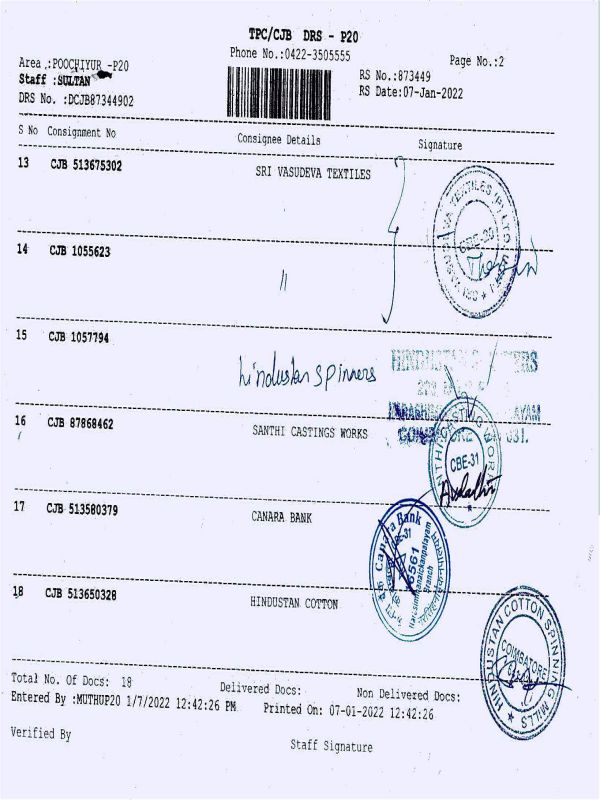 TPC/CJB DRS - P20
Phone No.:0422-3505555
Page No.:2
Area :POOCHIYUR -P20
Staff :SULTAN
DRS No. :DCJB87344902
RS No.:873449
RS Date:07-Jan-2022
S No Consignment No Consignee Details Signature
13 CJB 513675302 SRI VASUDEVA TEXTILES
14 CJB 1055623 "
15 CJB 1057794 hindustan spinners
HINDUSTAN
COIMBATORE 631.
16 CJB 87868462 SANTHI CASTINGS WORKS
CBE-31
17 CJB 513580379 CANARA BANK
Canara Bank
Branch
18 CJB 513650328 HINDUSTAN COTTON
HINDUSTAN COTTON SPINNING MILLS
COIMBATORE
Total No. Of Docs: 18 Delivered Docs: Non Delivered Docs:
Entered By :MUTHUP20 1/7/2022 12:42:26 PM Printed On: 07-01-2022 12:42:26
Verified By Staff Signature